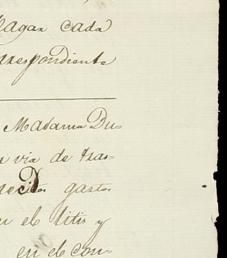 hagan cada
correspondiente
Madama Du-
a via de tras-
gastos
en el litis y
en el con-